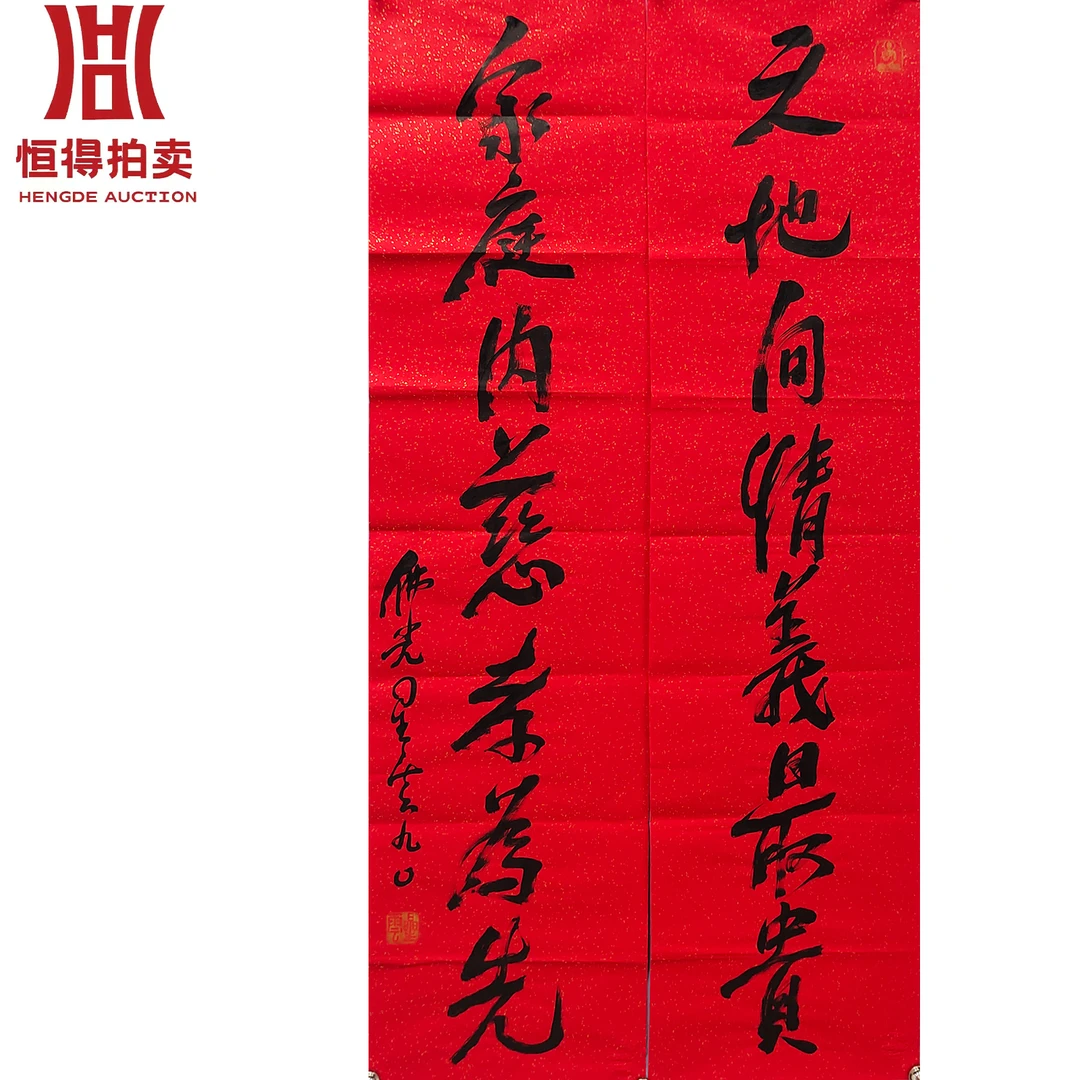 恒得拍卖
HENGDE AUCTION
天地间情義最貴
家庭内慈孝為先
佛光星雲九〇